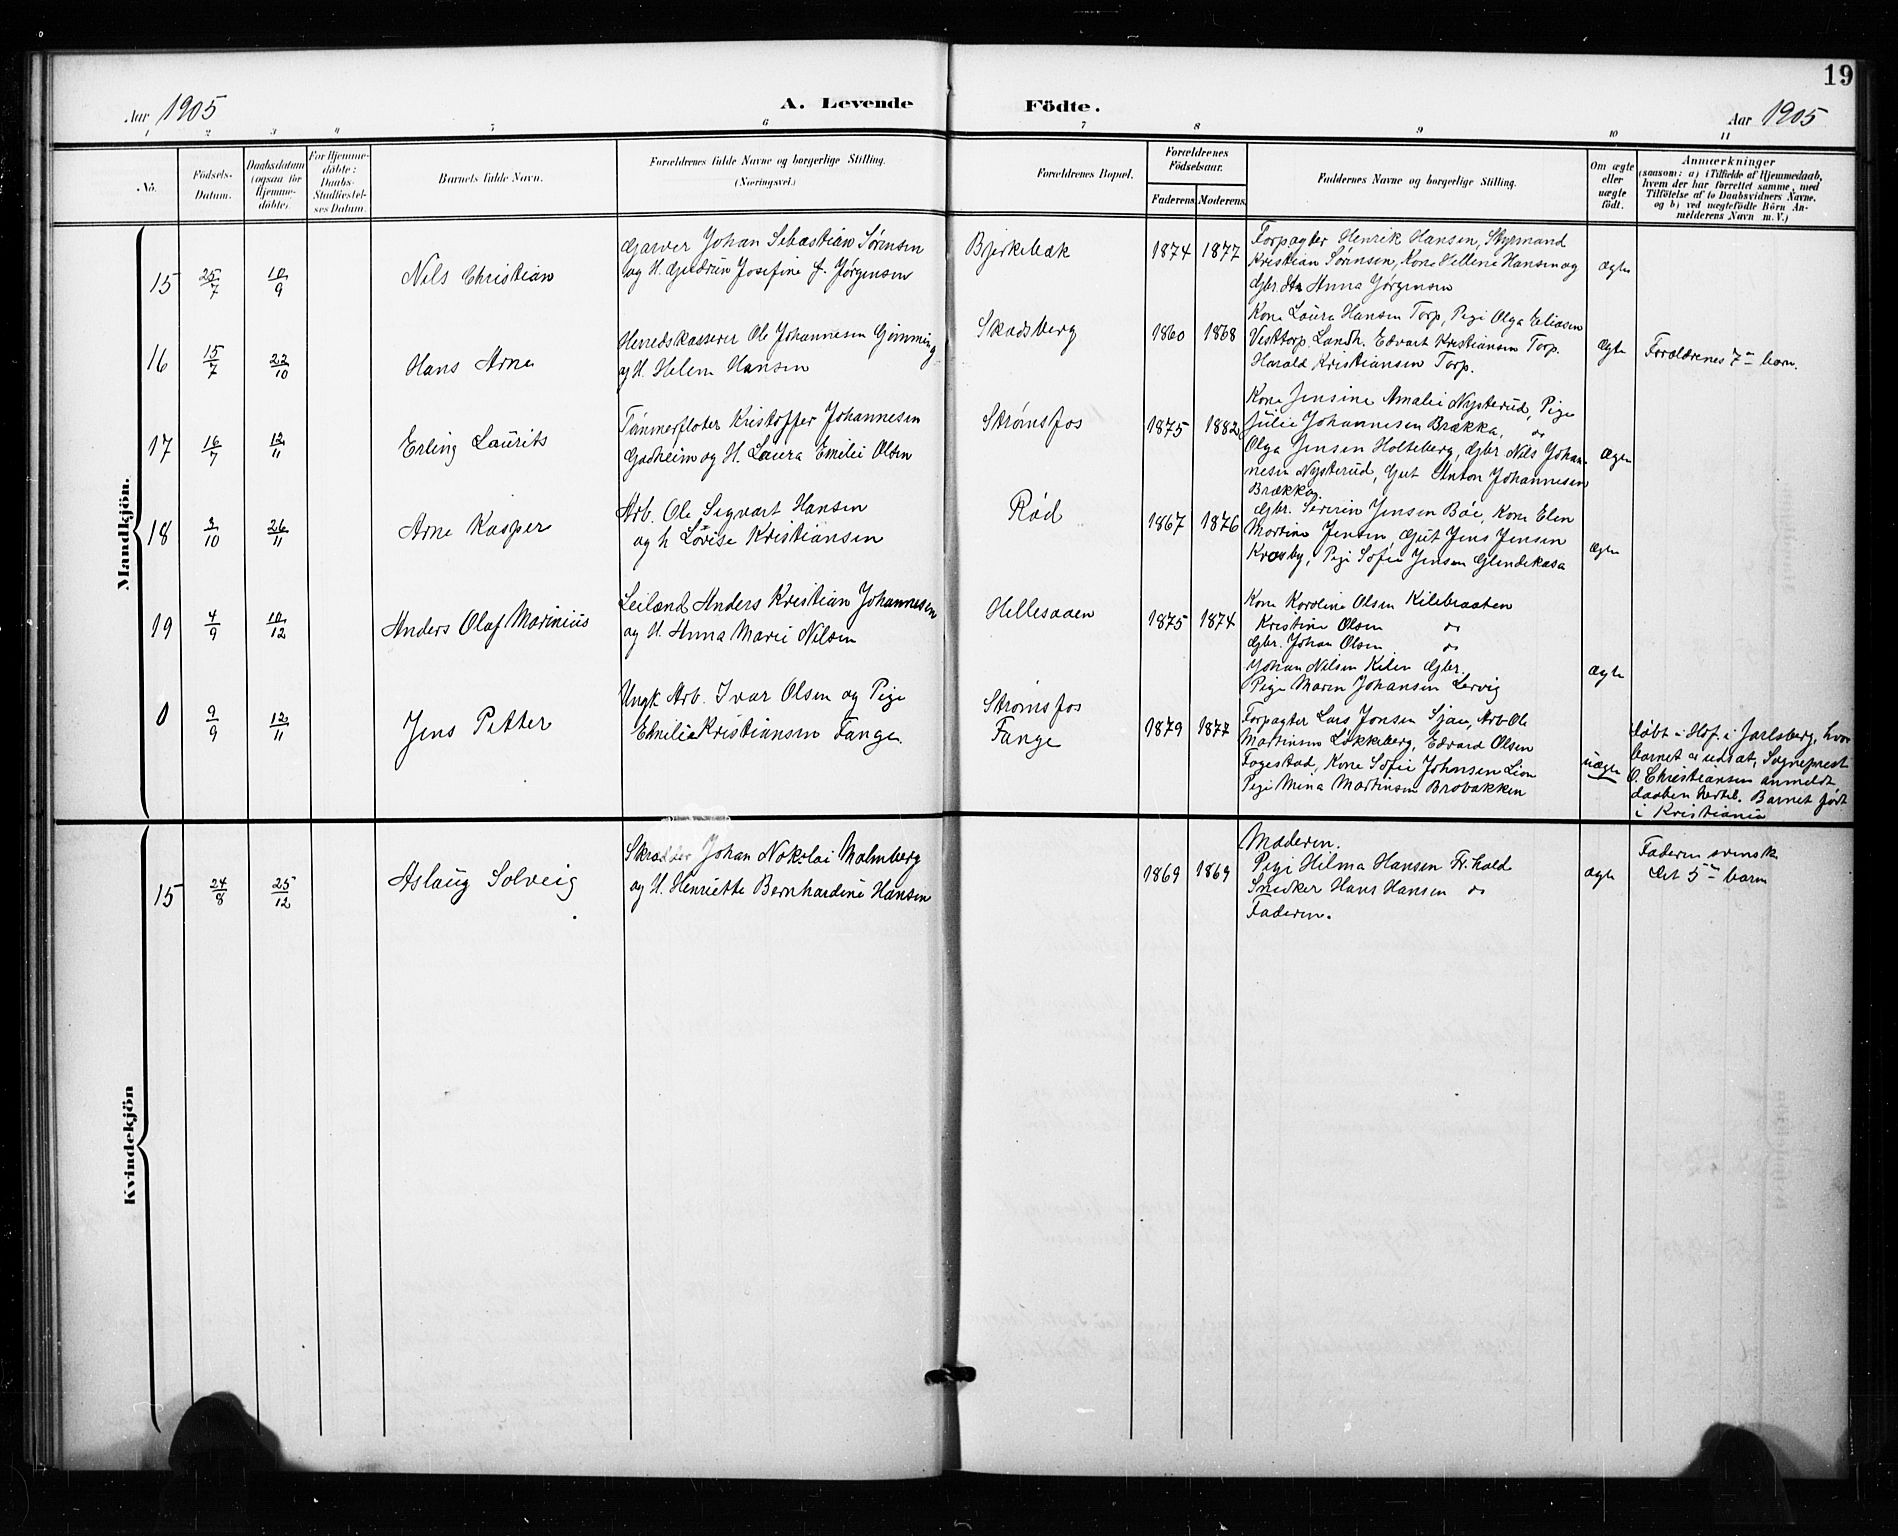 19
Aar 1905
A. Levende Födte.
Aar 1905
1 2 3 4 5 6 7 8 9 10 11
No.
Födsels-
Datum.
Daabsdatum
(ogsaa for
Hjemme-
døbte).
For Hjemme-
døbte:
Daabs-
Stadfæstel-
ses Datum.
Barnets fulde Navn.
Forældrenes fulde Navne og borgerlige Stilling.
(Næringsvei.)
Forældrenes Bopæl.
Forældrenes
Födselsaar.
Faderens Moderens
Faddernes Navne og borgerlige Stilling.
Om ægte
eller
uægte
født.
Anmærkninger
(saasom: a) i Tilfælde af Hjemmedaab,
hvem der har forrettet samme, med
Tilföielse af to Daabsvidners Navne,
og b) ved uægtefödte Börn An-
melderens Navn m. V.)
Mandkjön.
15 25/7 10/9 Nils Christian
Garver Johan Sebastian Sørensen
og H. Gudrun Josefine f. Jørgensen
Bjerkebæk
1874 1877
Forpagter Henrik Hansen, Styrmand
Kristian Sørensen, Kone Hellene Hansen og
Gbr. dtr. Anna Jørgensen
Ægte
16 15/7 22/10 Hans Arne
Herredskasserer Ole Johannesen Gimming
og H. Helene Hansen
Skadsberg
1860 1868
Kone Laura Hansen Torp, Pige Olga Eliasen
Vesttorp, Landh. Edvart Kristiansen Torp.
Harald Kristiansen Torp.
Ægte
Forældrenes 7de barn.
17 16/7 12/11 Erling Laurits
Tømmerfløter Kristoffer Johannesen
Gasheim og H. Laura Emilie Olsen
Strømsfos
1875 1882
Kone Jensine Amalie Nysterud, Pige
Julie Johannesen Brækka, do
Olga Jensen Holteberg, Gbr. Nils Johan-
nesen Nysterud, Gut Anton Johannesen
Brækka.
Ægte
18 3/10 26/11 Arne Kasper
Arb. Ole Sigvart Hansen
og h Lovise Kristiansen
Rød
1867 1876
Gbr. Severin Jensen Bøe, Kone Elen
Martine Jensen, Gut Jens Jensen
Krosby, Pige Sofie Jensen Glendekasa
Ægte
19 4/9 10/12 Anders Olaf Marinius
Leilænd Anders Kristian Johannesen
og H. Anna Marie Nilsen
Hellesaaen
1875 1874
Kone Karoline Olsen Kilebraaten
Kristine Olsen do
Gbr. Johan Olsen do
Johan Nilsen Kilen Gbr.
Pige Maren Johansen Lervig
Ægte
0 9/9 12/11 Jens Petter
Ungk. Arb. Ivar Olsen og Pige
Emilie Kristiansen Fange.
Strømsfos
Fange
1879 1877
Forpagter Lars Jonsen Sjau, Arb. Ole
Martinsen Løkkeberg, Edvard Olsen
Fagestad, Kone Sofie Johnsen Lien
Pige Mina Martinsen Brobakken
uægte
døbt i Hof i Jarlsberg, hvor
barnet er udsat, Sogneprest
O. Christiansen anmeldt
daaben hertil. Barnet født
i Kristiania
Kvindekjön
15 24/8 25/12 Aslaug Solveig
Skrædder Johan Nokolai Malmberg
og H. Henriette Bernhardine Hansen
1869 1869
Moderen.
Pige Hilma Hansen Fr.hald
Snedker Hans Hansen do
Faderen.
ægte
Faderen svensk
Det 5te barn